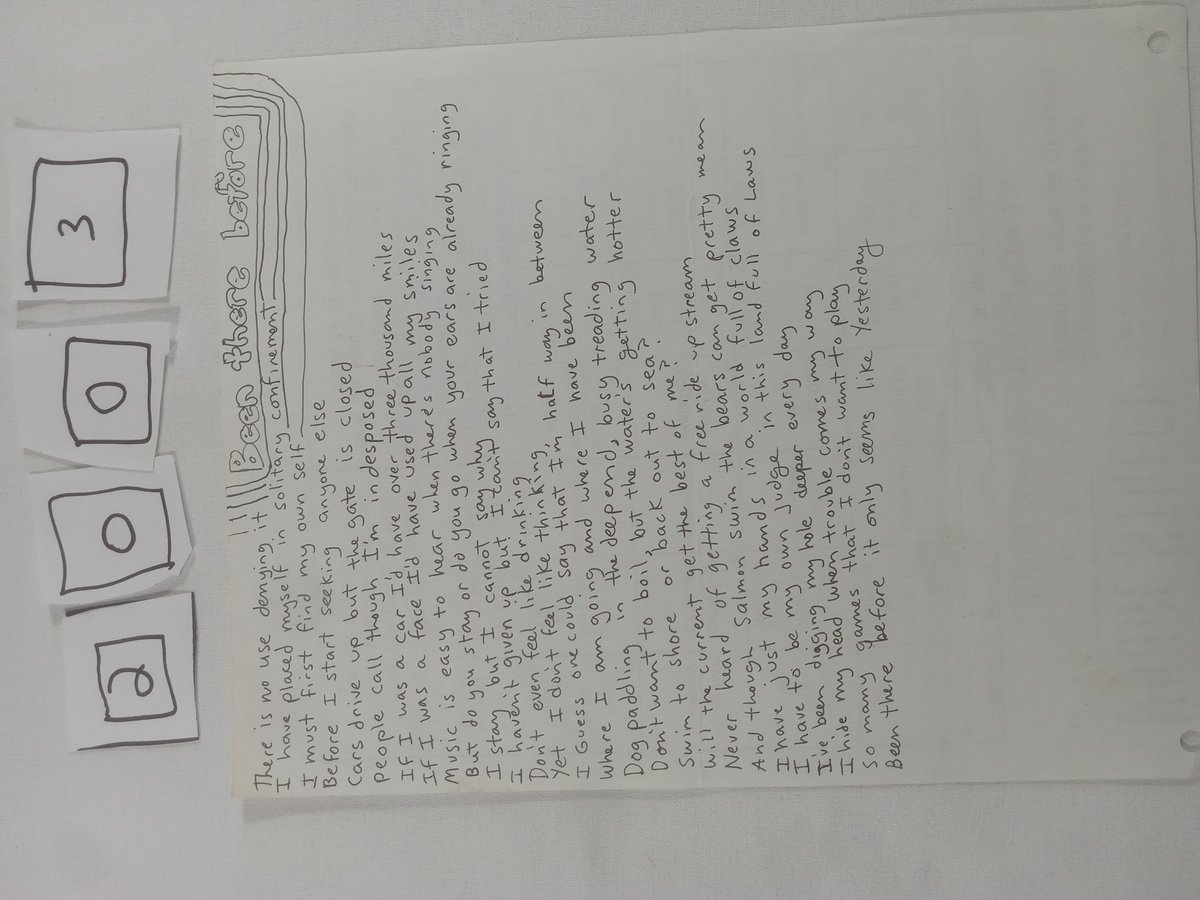 2 0 0 3
Been there before
There is no use denying it
I have placed myself in solitary confinement
I must first find my own self
Before I start seeking anyone else
Cars drive up but the gate is closed
people call though I'm in desposed
If I was a car I'd have over three thousand miles
If I was a face I'd have used up all my smiles
Music is easy to hear when theres nobody singing
But do you stay or do you go when your ears are already ringing
I stay but I cannot say why
I haven't given up but I can't say that I tried
Don't even feel like drinking
Yet I don't feel like thinking,
I Guess one could say that I'm half way in between
Where I am going and where I have been
Dog paddling in the deep end, busy treading water
Don't want to boil, but the water's getting hotter
Swim to shore or back out to sea?
will the current get the best of me?
Never heard of getting a free ride up stream
And though Salmon swim the bears can get pretty mean
I have just my hands in a world full of claws
I have to be my own Judge in this land full of Laws
I've been digging my hole deeper every day
I hide my head when trouble comes my way
So many games that I don't want to play
Been there before it only seems like Yesterday